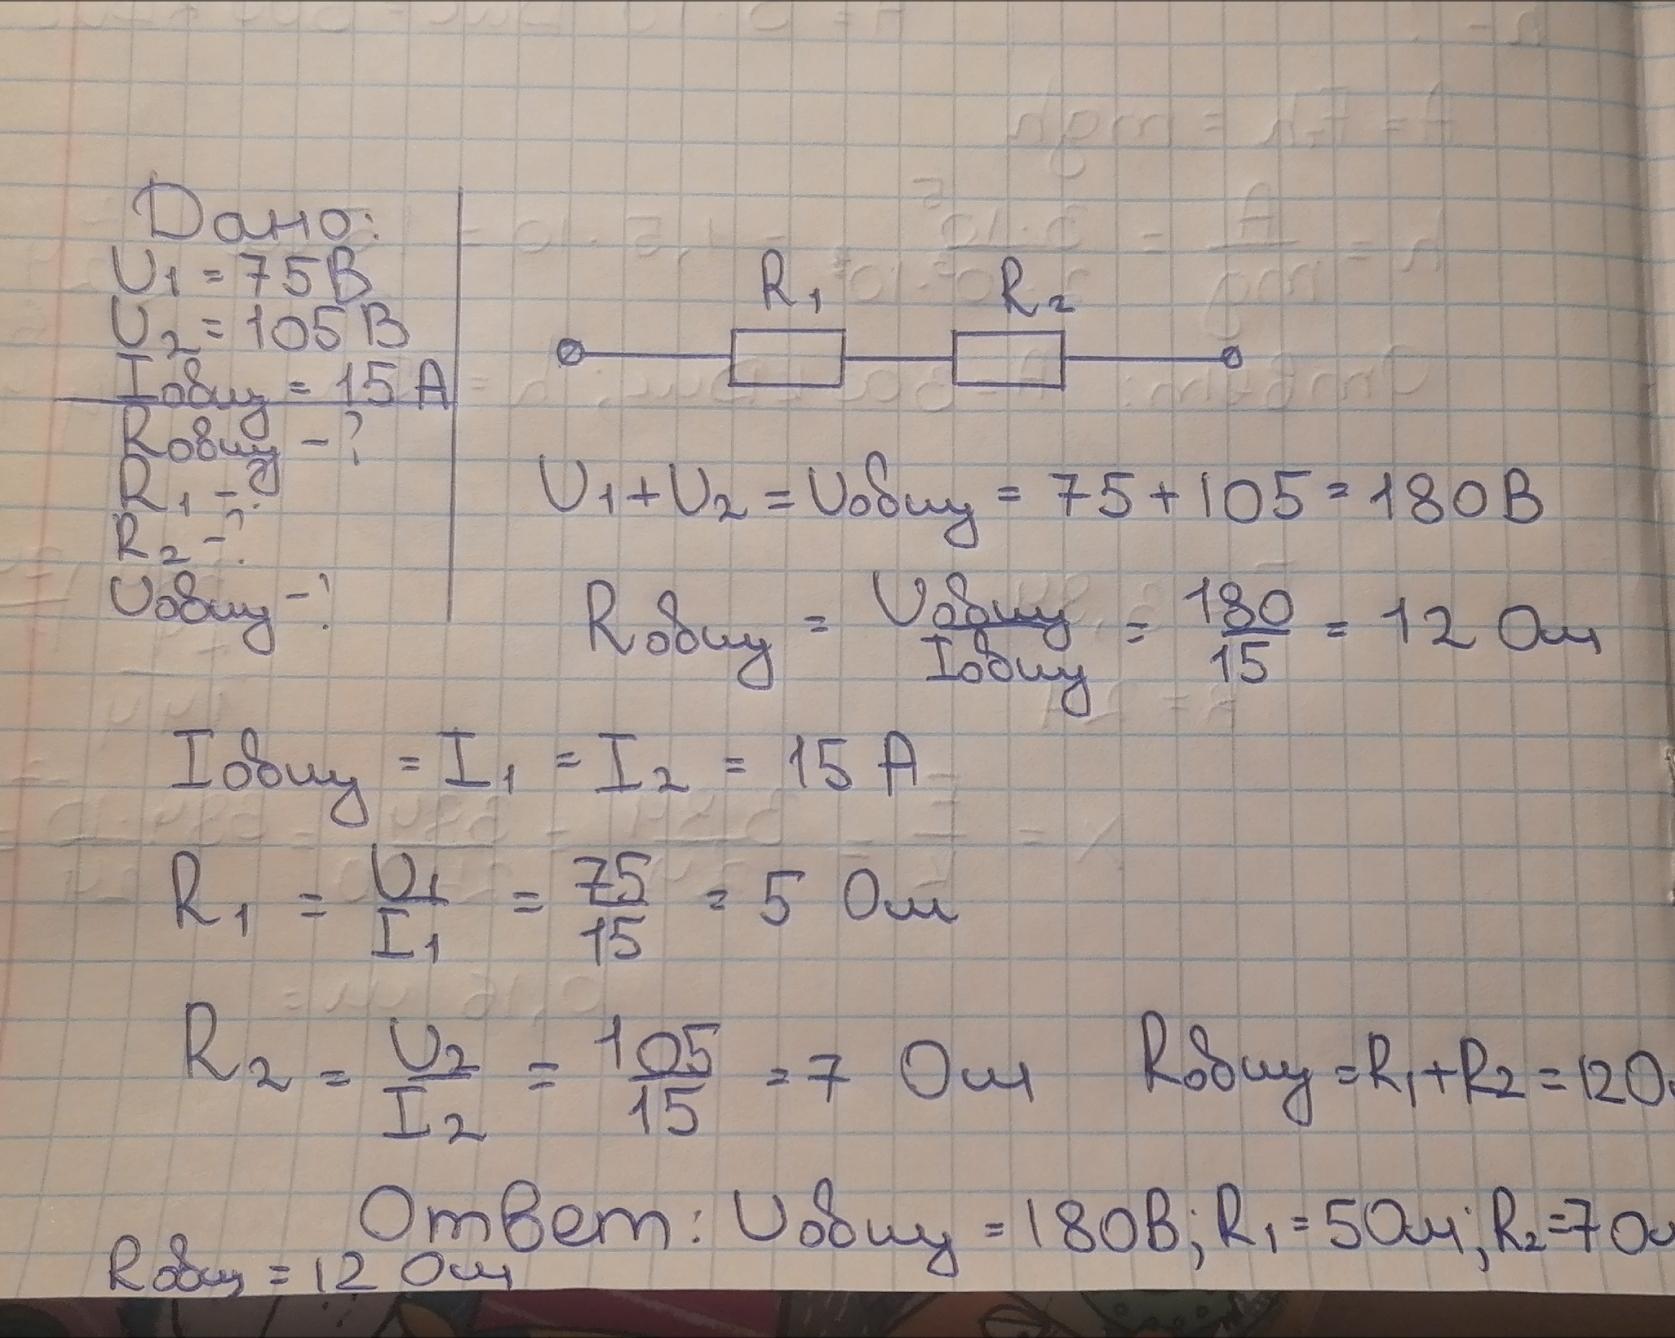 Дано:
U1 = 75 В
U2 = 105 В
Iобщ = 15 А
Rобщ - ?
R1 - ?
R2 - ?
Uобщ - ?
R1 R2
U1 + U2 = Uобщ = 75 + 105 = 180 В
Rобщ = Uобщ / Iобщ = 180 / 15 = 12 Ом
Iобщ = I1 = I2 = 15 А
R1 = U1 / I1 = 75 / 15 = 5 Ом
R2 = U2 / I2 = 105 / 15 = 7 Ом Rобщ = R1 + R2 = 12 О
Ответ: Uобщ = 180 В; R1 = 5 Ом; R2 = 7 Ом
Rобщ = 12 Ом